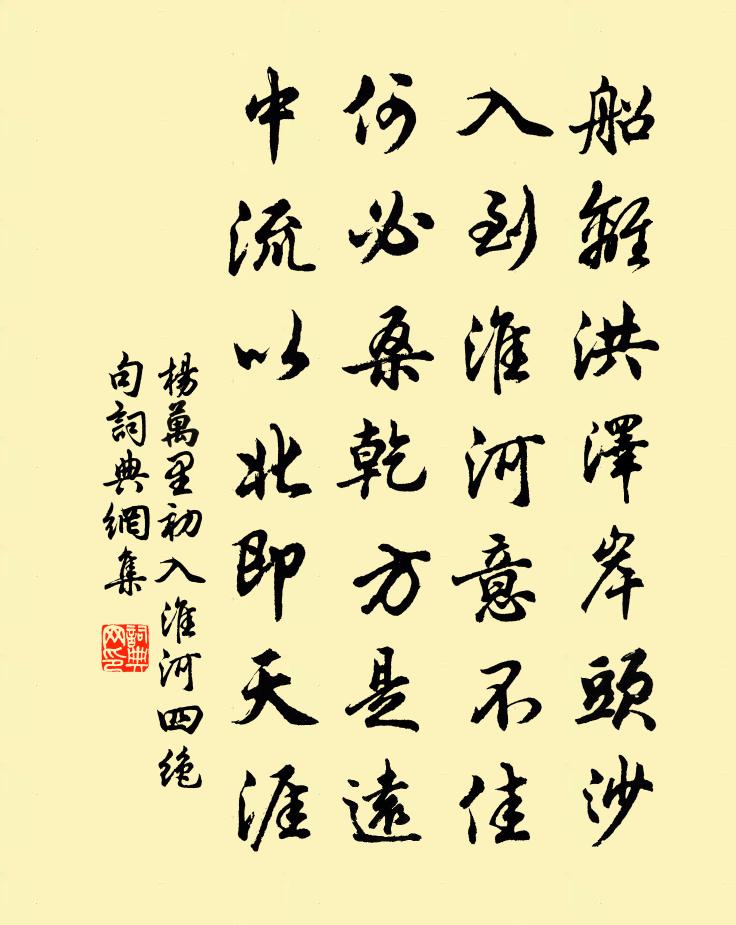 船離洪澤岸頭沙
入到淮河意不佳
何必桑乾方是遠
中流以北即天涯
楊萬里初入淮河四絶
句詞典網集
詞典
网印